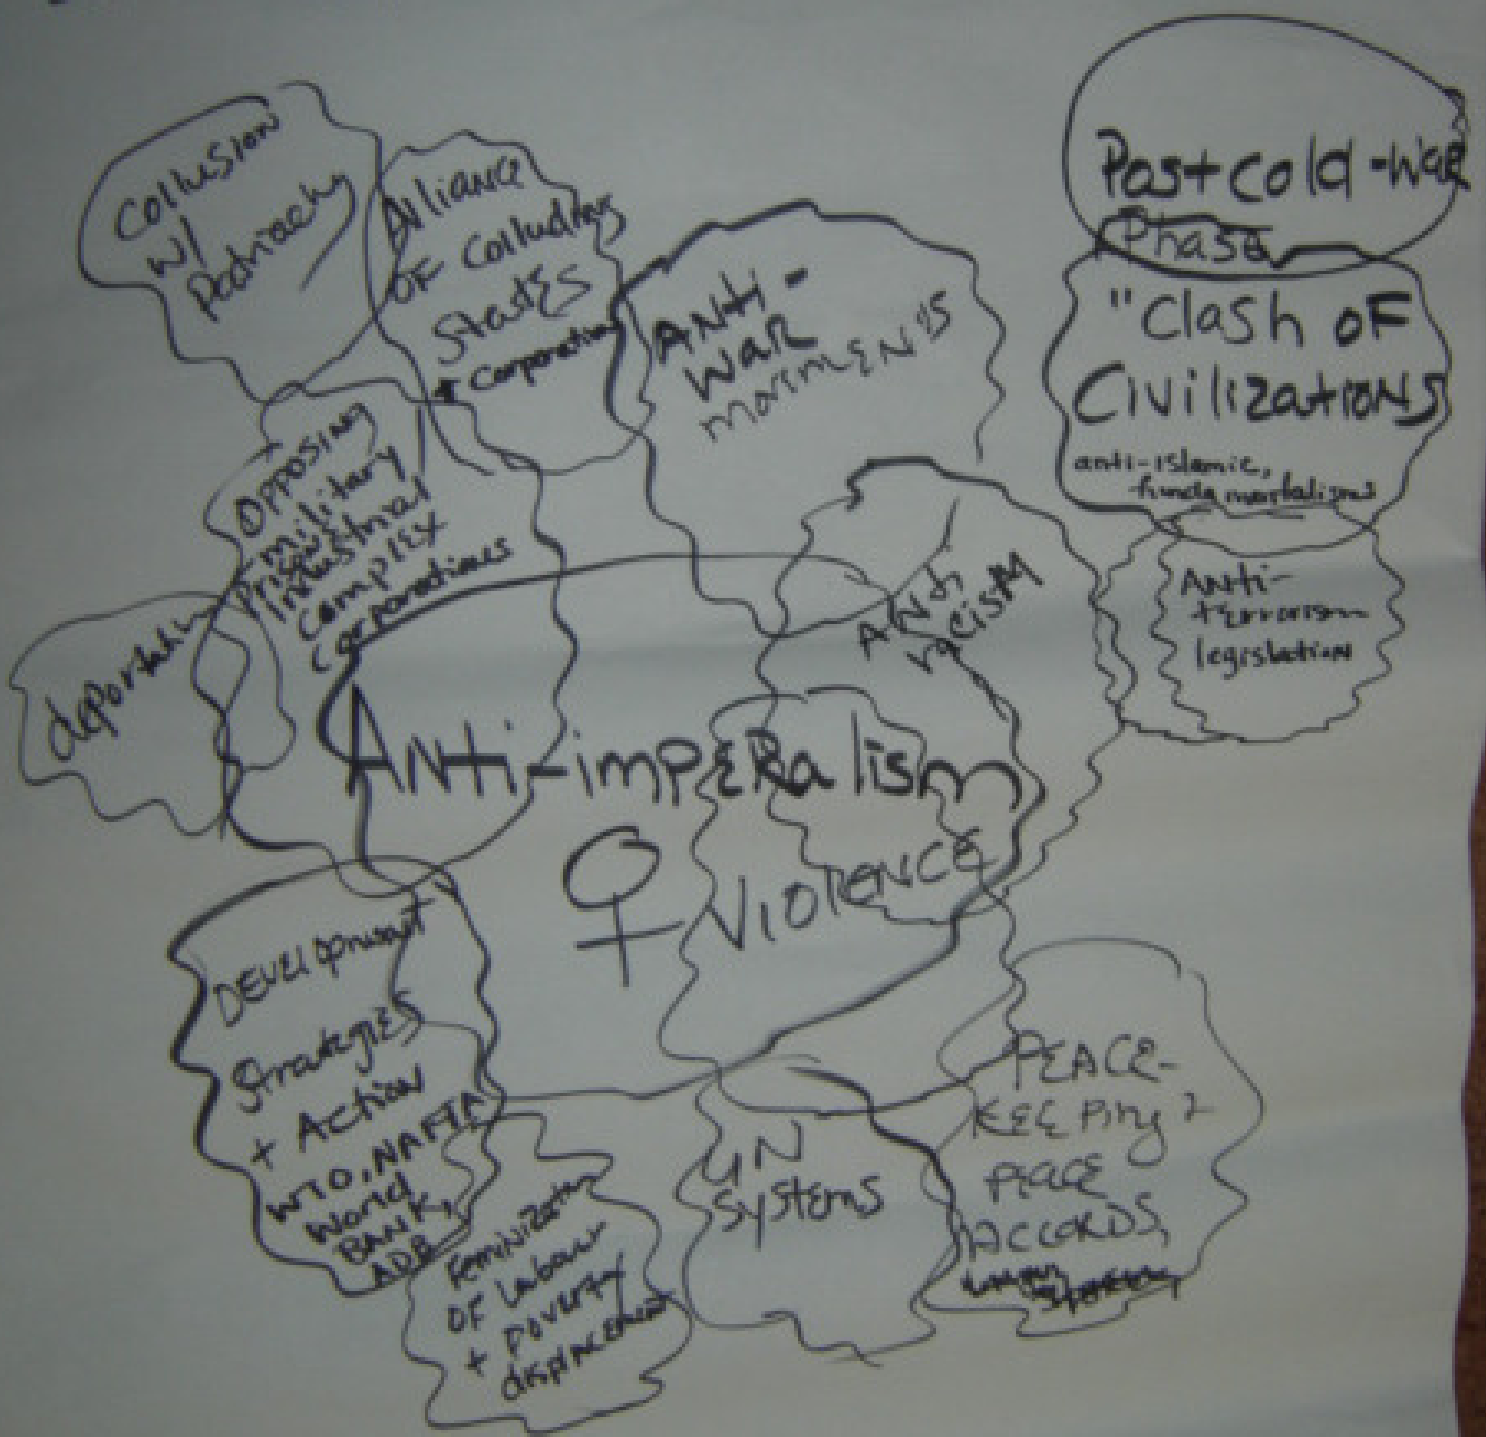 Collusion
w/
Patriachy
Alliance
OF Colluding
StatES
+ Corporations
ANti-
WAR
Post cold-WAR
Phase
"Clash oF
CiviliZatioNS
anti-islamic,
ANti-
tErrorism
legislation
OPPOSING
military
Prison
Industrial
ComplEX
Corporations
deportation
ANti
racisM
ANti-impERalism
♀ VIOlENCE
DEVElopment
StratEgiES
+ Action
WTO, NAFTA
World
BANK,
ADB
FeminiZation
OF Labour
+ Poverty
displacement
UN
SystEmS
PEACE-
KEEPing ?
PEACE
ACCORDS,